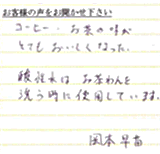 お客様の声をお聞かせ下さい
コーヒー・お茶の味が
とてもおいしくなった。
酸性水は お茶わんを
洗う時に使用しています。
岡本早苗